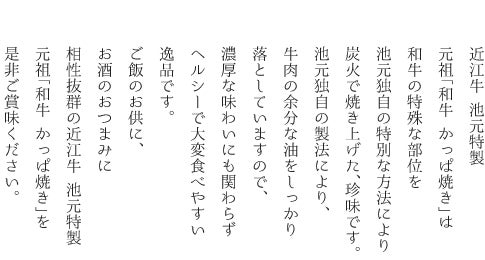 近江牛 池元特製
元祖「和牛 かっぱ焼き」は
和牛の特殊な部位を
池元独自の特別な方法により
炭火で焼き上げた、珍味です。
池元独自の製法により、
牛肉の余分な油をしっかり
落としていますので、
濃厚な味わいにも関わらず
ヘルシーで大変食べやすい
逸品です。
ご飯のお供に、
お酒のおつまみに
相性抜群の近江牛 池元特製
元祖「和牛 かっぱ焼き」を
是非ご賞味ください。